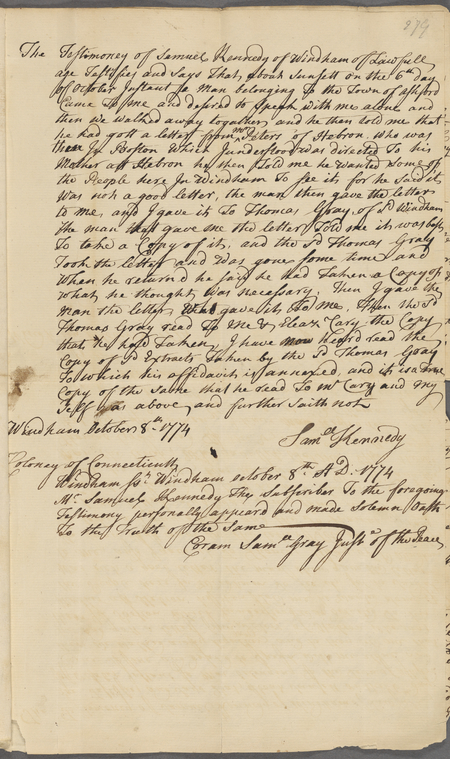 279
The Testimoney of Samuel Kennedy of Windham of Lawfull
age Testifies and Says That, about Sunsett on the 6th Day
of October Instant a Man belonging to the Town of ashford
Came To me and desired to Speak with me alone and
then we walked away together, and he then told me that
he had gott a letter from mr Peters of Hebron, who was
then In Boston Which I understood was directed To his
Mother att Hebron he then told me he wanted Some of
the People here In Windham To See it, for he Said it
was not a good letter, the man then gave the letter
to me, and I gave it To Thomas Gray, of Sd Windham
The man that gave me the letter Told me it was best
To take a Copy of it, and the Sd Thomas Gray
Took the letter and was gone Some time and
When he returnd he said he had Taken a Copy of
what he thought was necessary, Then I gave the
man the letter that gave it to me, Then the Sd
Thomas Gray read To me & Eleazr Cary the Copy
that he had Taken, I have now heard read the
Copy of Sd Extracts Taken by the Sd Thomas Gray
To which his affidavit is annexed, and it is a true
Copy of the Same that he read To mr Cary and my
Self as above, and further Saith not
Windham October 8th 1774
Samll Kennedy
Coloney of Connecticutt
Windham ss Windham october 8th AD. 1774
Mr Samuel Kennedy The Subscriber To the foregoing
Testimony personally appeard and made Solemn Oath
To the Truth of the Same
Coram Samll Gray Juste of the Peace